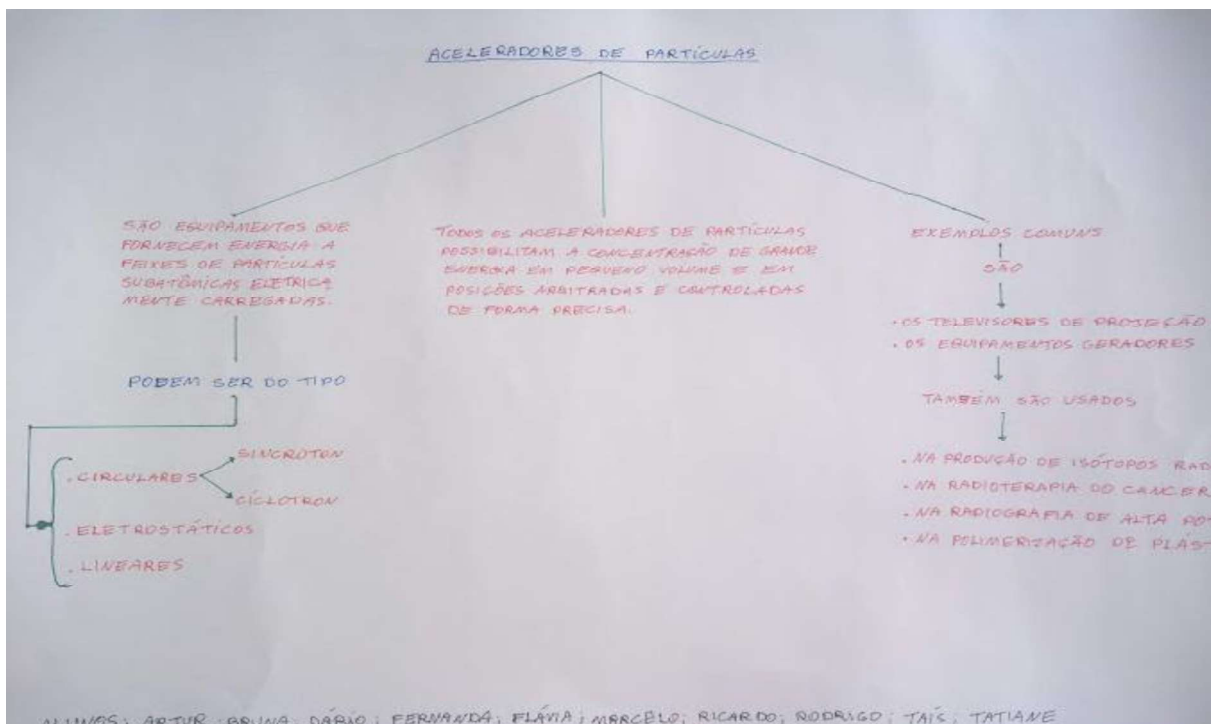 ACELERADORES DE PARTÍCULAS
SÃO EQUIPAMENTOS QUE
FORNECEM ENERGIA A
FEIXES DE PARTÍCULAS
SUBATÔMICAS ELETRICA
MENTE CARREGADAS.
PODEM SER DO TIPO
SINCROTON
. CIRCULARES
CÍCLOTRON
. ELETROSTÁTICOS
. LINEARES
TODOS OS ACELERADORES DE PARTÍCULAS
POSSIBILITAM A CONCENTRAÇÃO DE GRANDE
ENERGIA EM PEQUENO VOLUME E EM
POSIÇÕES ARBITRADAS E CONTROLADAS
DE FORMA PRECISA.
EXEMPLOS COMUNS
SÃO
. OS TELEVISORES DE PROJEÇÃO
. OS EQUIPAMENTOS GERADORES
TAMBÉM SÃO USADOS
. NA PRODUÇÃO DE ISÓTOPOS RAD
. NA RADIOTERAPIA DO CANCER
. NA RADIOGRAFIA DE ALTA PO
. NA POLIMERIZAÇÃO DE PLÁST
ALUNOS: ARTUR; BRUNA; DÁRIO; FERNANDA; FLÁVIA; MARCELO; RICARDO; RODRIGO; TAÍS; TATIANE